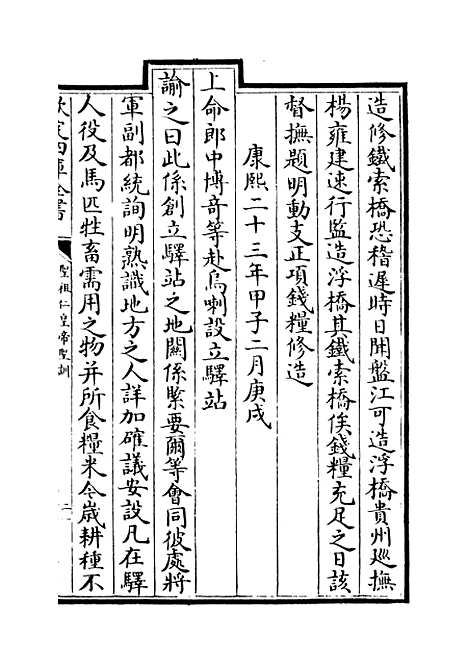 造修鐵索橋恐稽遲時日聞盤江可造浮橋貴州巡撫
楊雍建速行監造浮橋其鐵索橋俟錢糧充足之日該
督撫題明動支正項錢糧修造
康熙二十三年甲子二月庚戌
上命郎中博奇等赴烏喇設立驛站
諭之曰此係創立驛站之地關係緊要爾等會同彼處將
軍副都統詢明熟識地方之人詳加確議安設凡在驛
人役及馬匹牲畜需用之物并所食糧米令嵗耕種不
欽定四庫全書
聖祖仁皇帝聖訓